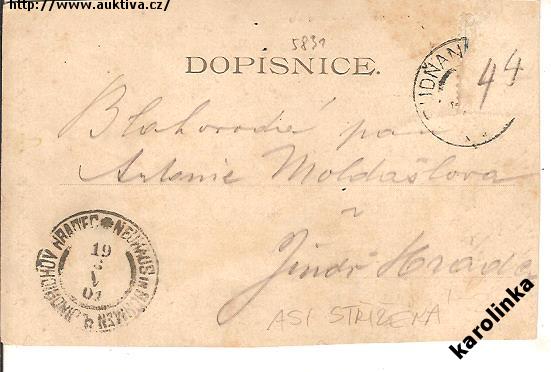 https://www.auktiva.cz/
5831
DOPISNICE.
44
Blahorodé paní
Antonie Moldašlova
v
Jindř. Hradec
JINDŘICHŮV HRADEC NEUHAUS IN BÖHMEN
19
V
ASI STŘIŽENÁ
karolinka